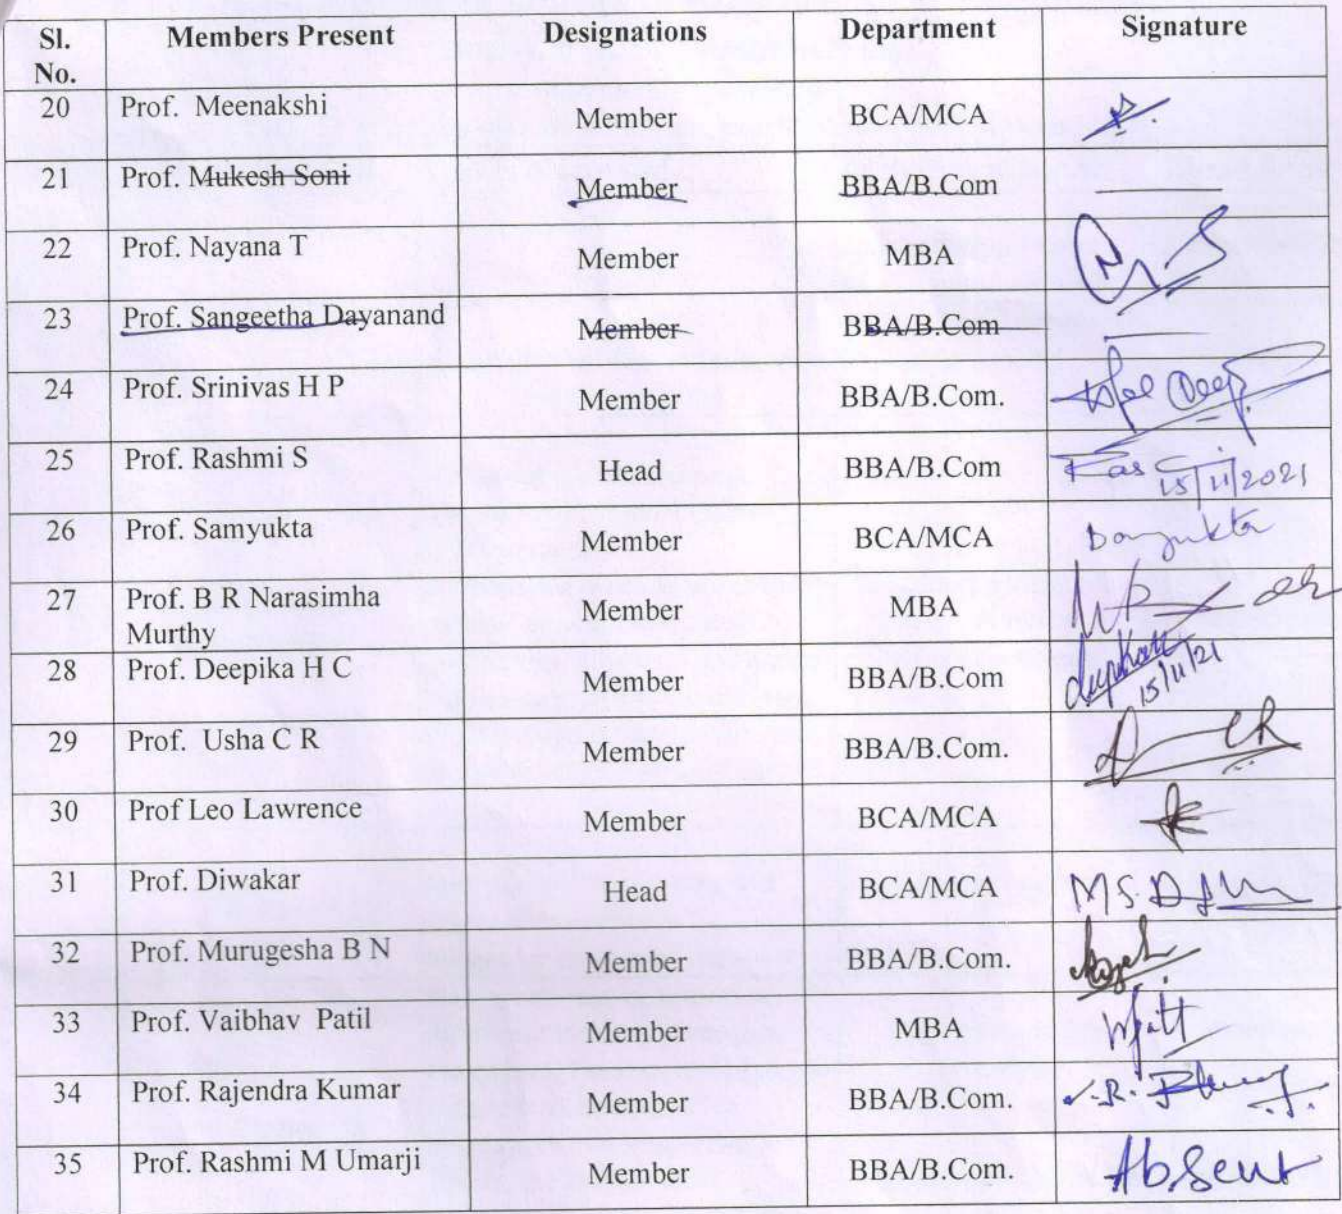 Sl. No. Members Present Designations Department Signature
20 Prof. Meenakshi Member BCA/MCA
21 Prof. Mukesh Soni Member BBA/B.Com
22 Prof. Nayana T Member MBA
23 Prof. Sangeetha Dayanand Member BBA/B.Com
24 Prof. Srinivas H P Member BBA/B.Com.
25 Prof. Rashmi S Head BBA/B.Com 15/11/2021
26 Prof. Samyukta Member BCA/MCA
27 Prof. B R Narasimha Member MBA
Murthy
28 Prof. Deepika H C Member BBA/B.Com 15/11/21
29 Prof. Usha C R Member BBA/B.Com.
30 Prof Leo Lawrence Member BCA/MCA
31 Prof. Diwakar Head BCA/MCA
32 Prof. Murugesha B N Member BBA/B.Com.
33 Prof. Vaibhav Patil Member MBA
34 Prof. Rajendra Kumar Member BBA/B.Com.
35 Prof. Rashmi M Umarji Member BBA/B.Com. Absent